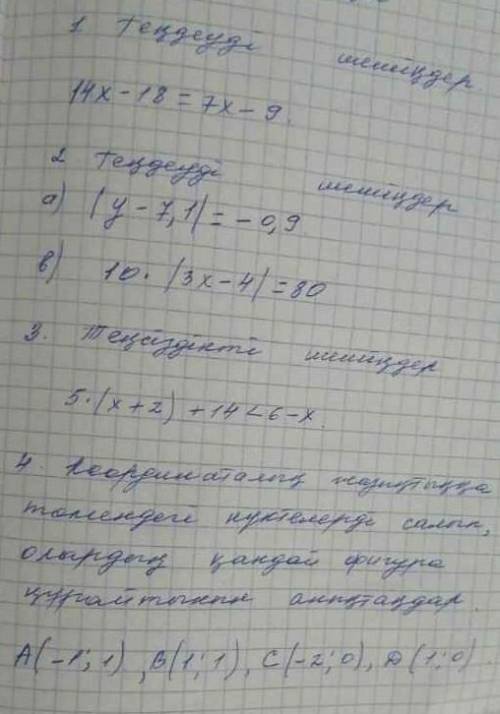 1 Теңдеуді шешіңдер
14x - 18 = 7x - 9.
2 теңдеуді шешіңдер
а) |y - 7,1| = - 0,9
в) 10 · |3x - 4| = 80
3. Теңсіздікті шешіңдер
5·(x + 2) + 14 < 6 - x.
4. Координаталық жазықтыққа
төмендегі нүктелерді салып,
олырдың қандай фигура
құрайтынын анықтаңдар.
A(-1; 1), B(1; 1), C(-2; 0), D(1; 0).